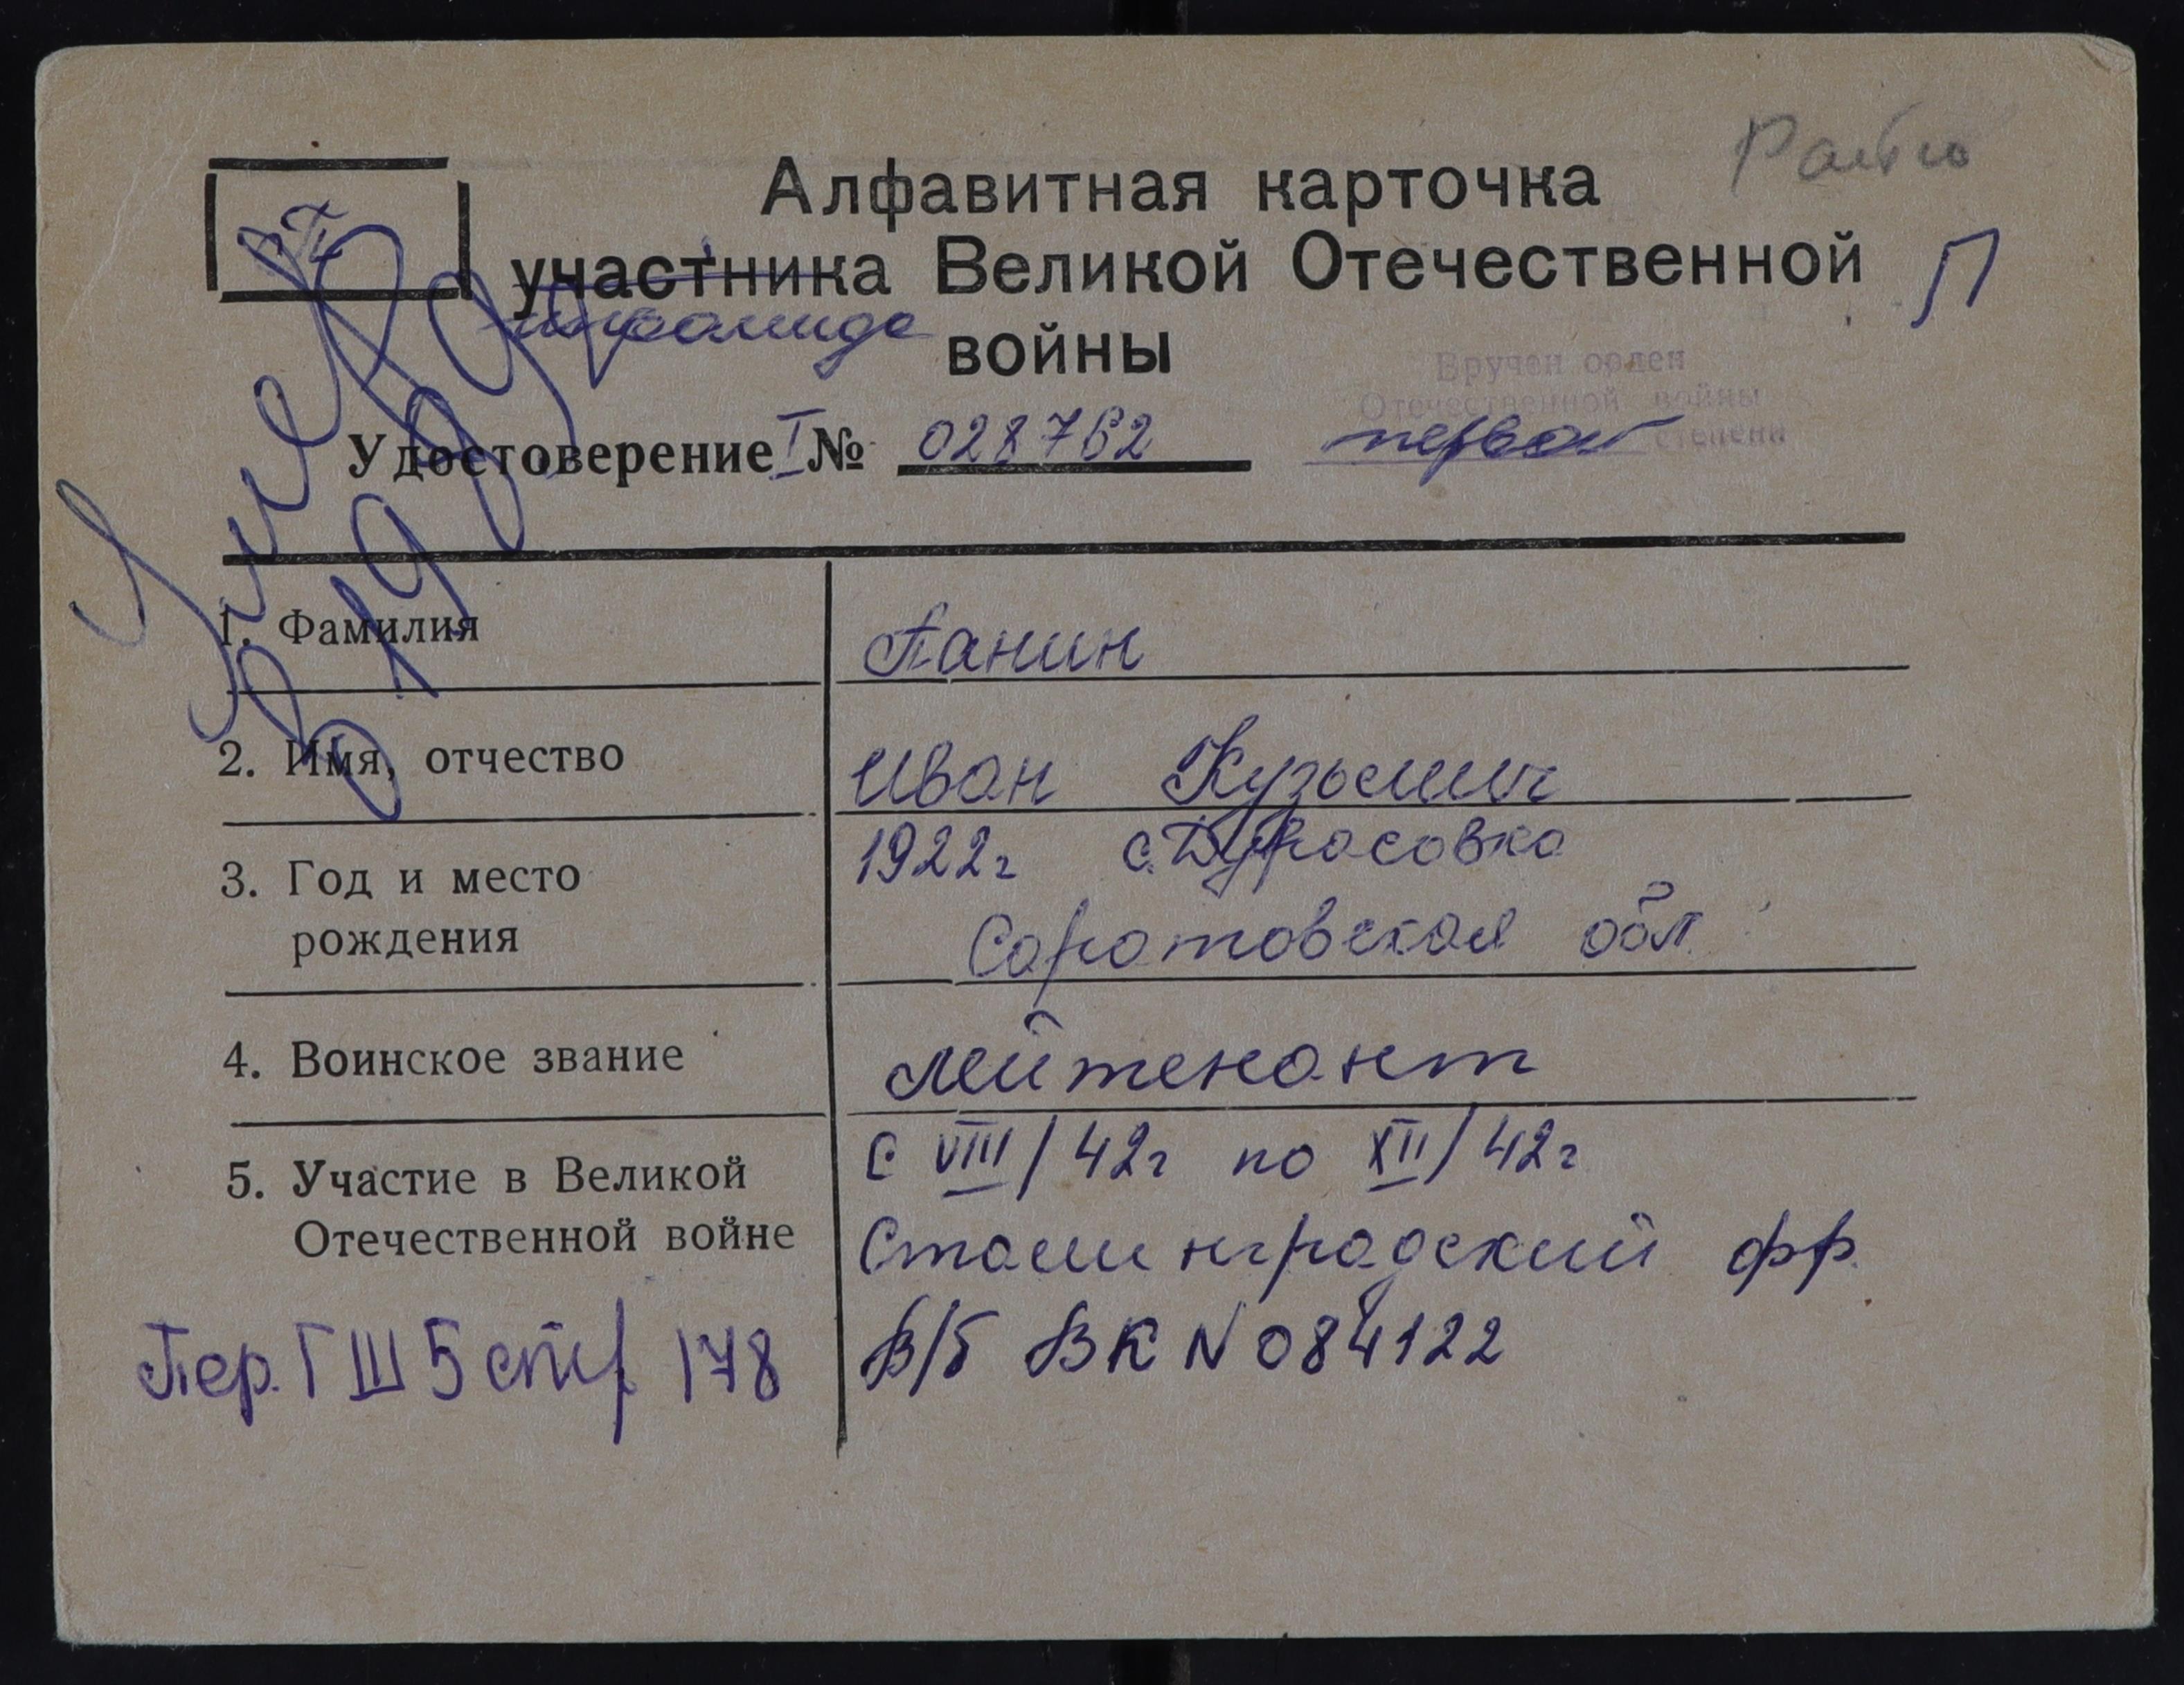 Алфавитная карточка
П
участника Великой Отечественной
инвалида
войны
Вручен орден
Отечественной войны
первой степени
Удостоверение I № 028762
1. Фамилия Панин
2. Имя, отчество Иван Кузьмич
3. Год и место 1922г с. Дурасовка
рождения Саратовская обл.
4. Воинское звание лейтенант
5. Участие в Великой с VIII/42г по XII/42г
Отечественной войне Сталинградский фр.
Пер. ГШ 5 стр 178 В/б ВК N 084122